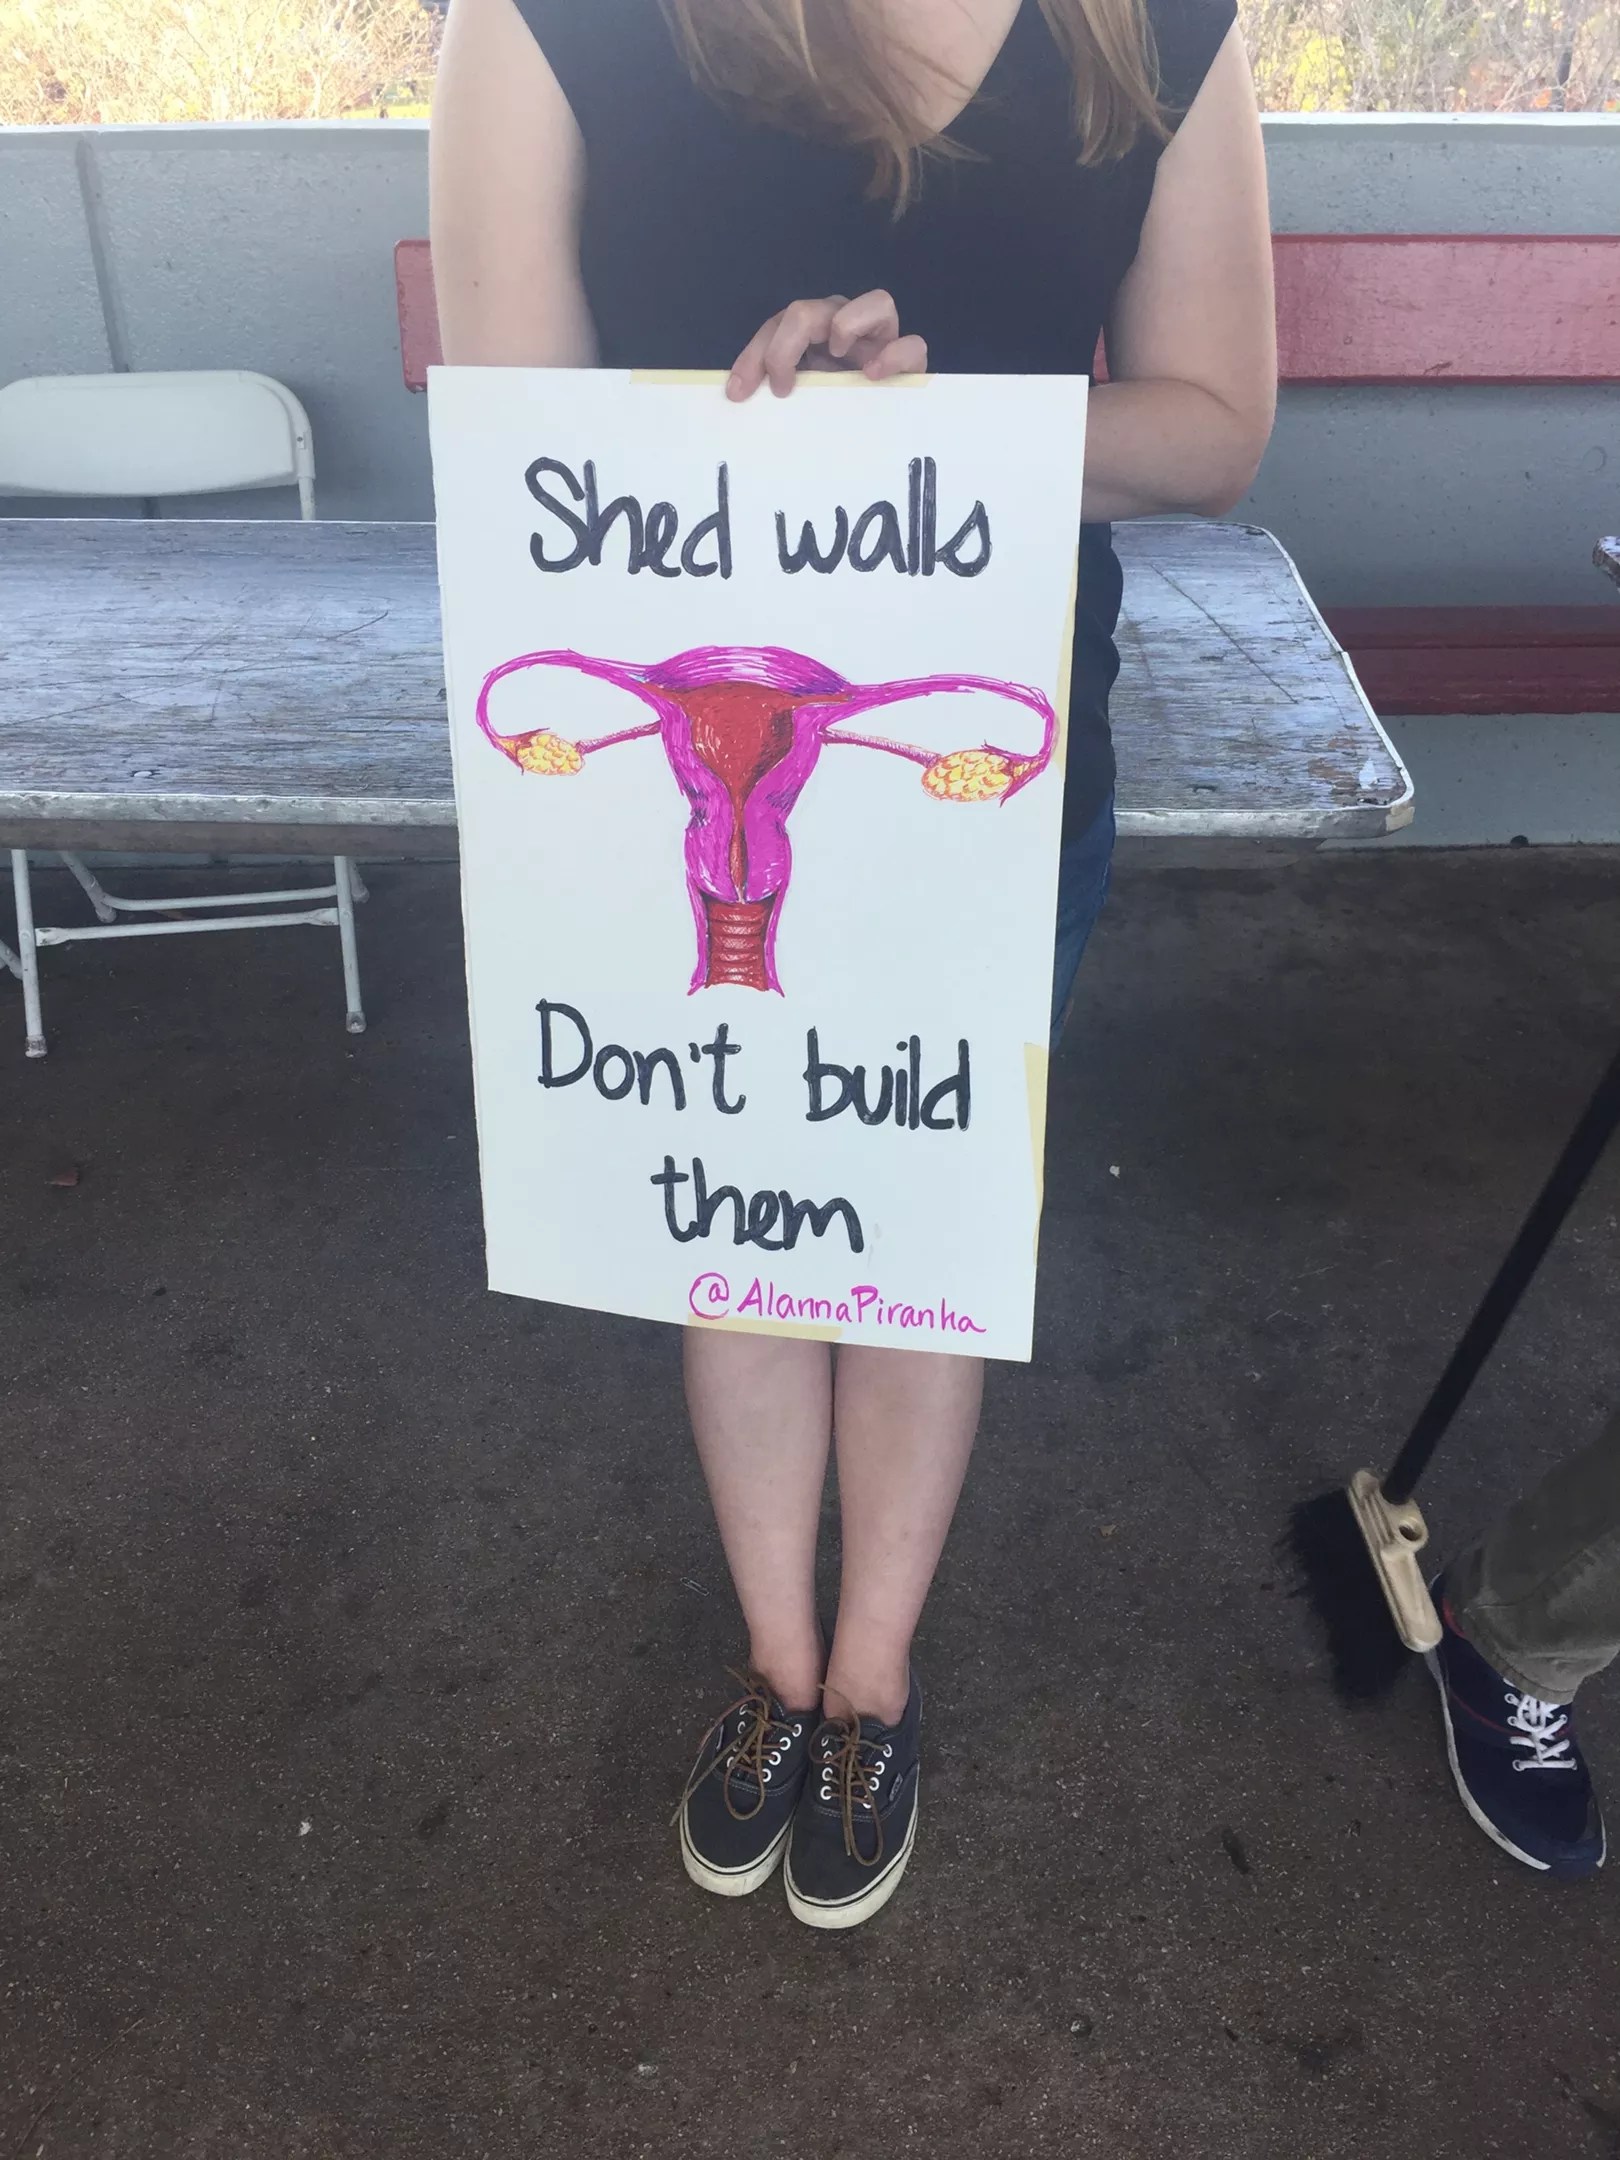 Shed walls
Don't build
them
@AlannaPiranha